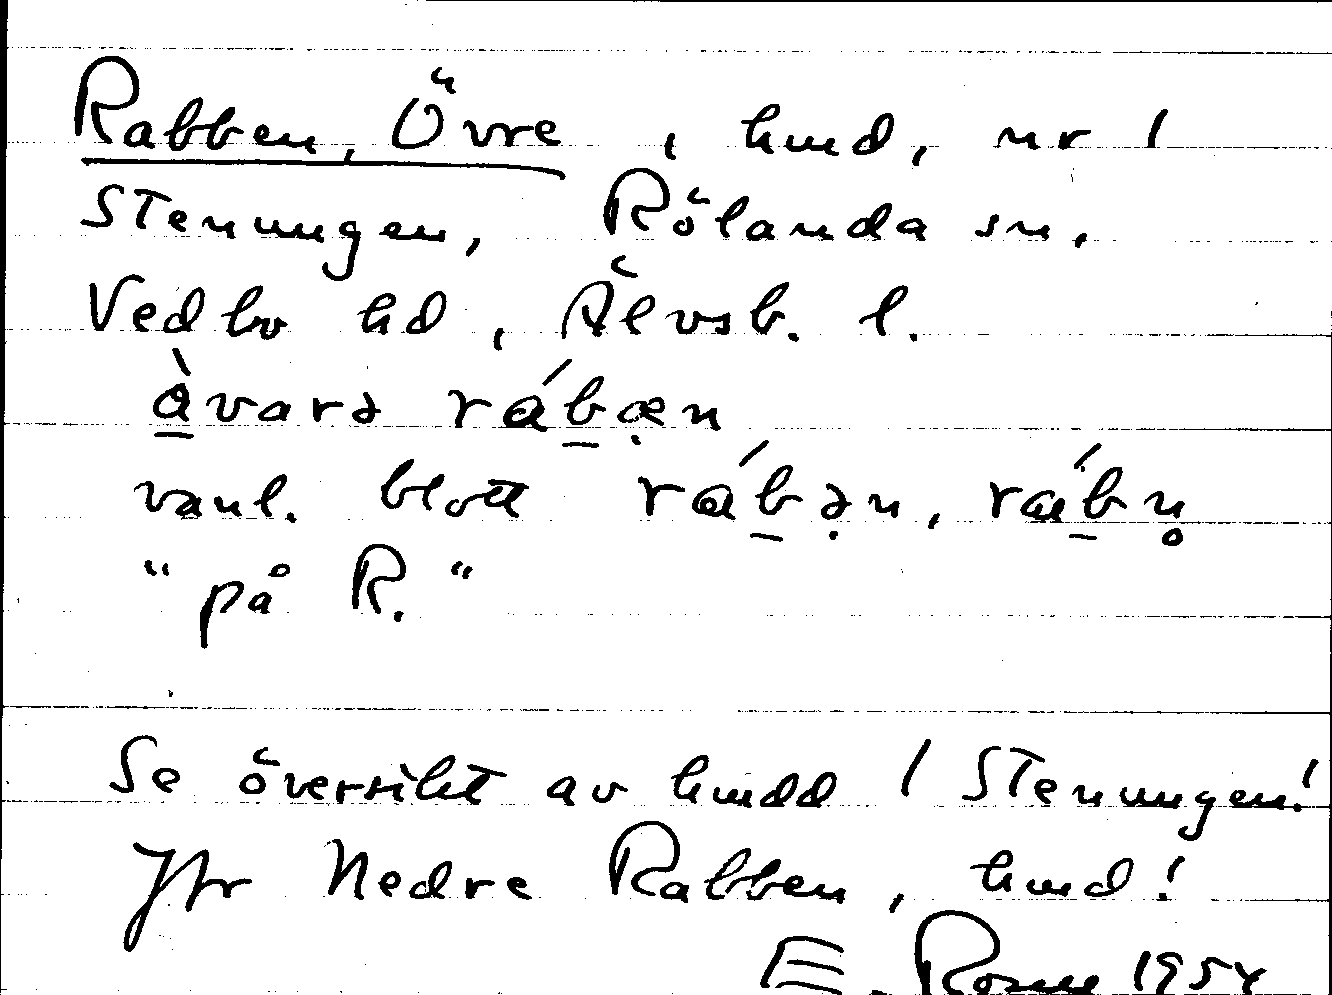 Rabben, Övre, hmd, nr 1
Stenungen, Rölanda sn,
Vedbo hd, Älvsb. l.
àvarə ráb̲æ̣n
vanl. blott ráb̲ə̣n, ráb̲n̥
"på R."
Se översikt av hmdd / Stenungen!
Jfr Nedre Rabben, hmd!
E. Rosell 1954